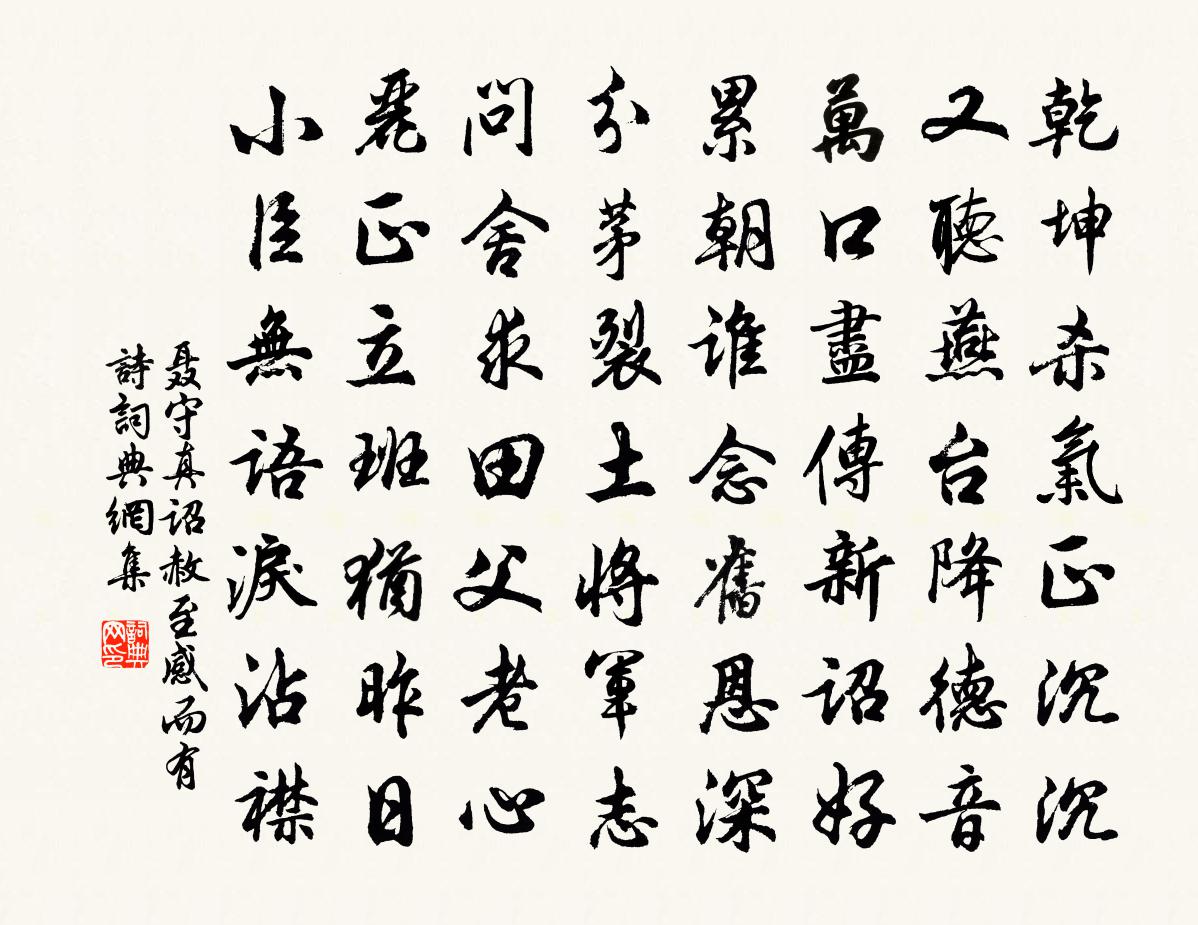 乾坤杀氣正沉沉
又聽燕台降德音
萬口盡傳新詔好
累朝誰念舊恩深
分茅裂土將軍志
問舍求田父老心
麗正立班猶昨日
小臣無語淚沾襟
聶守真詔赦至感而有
詩詞典網集
詞典网印